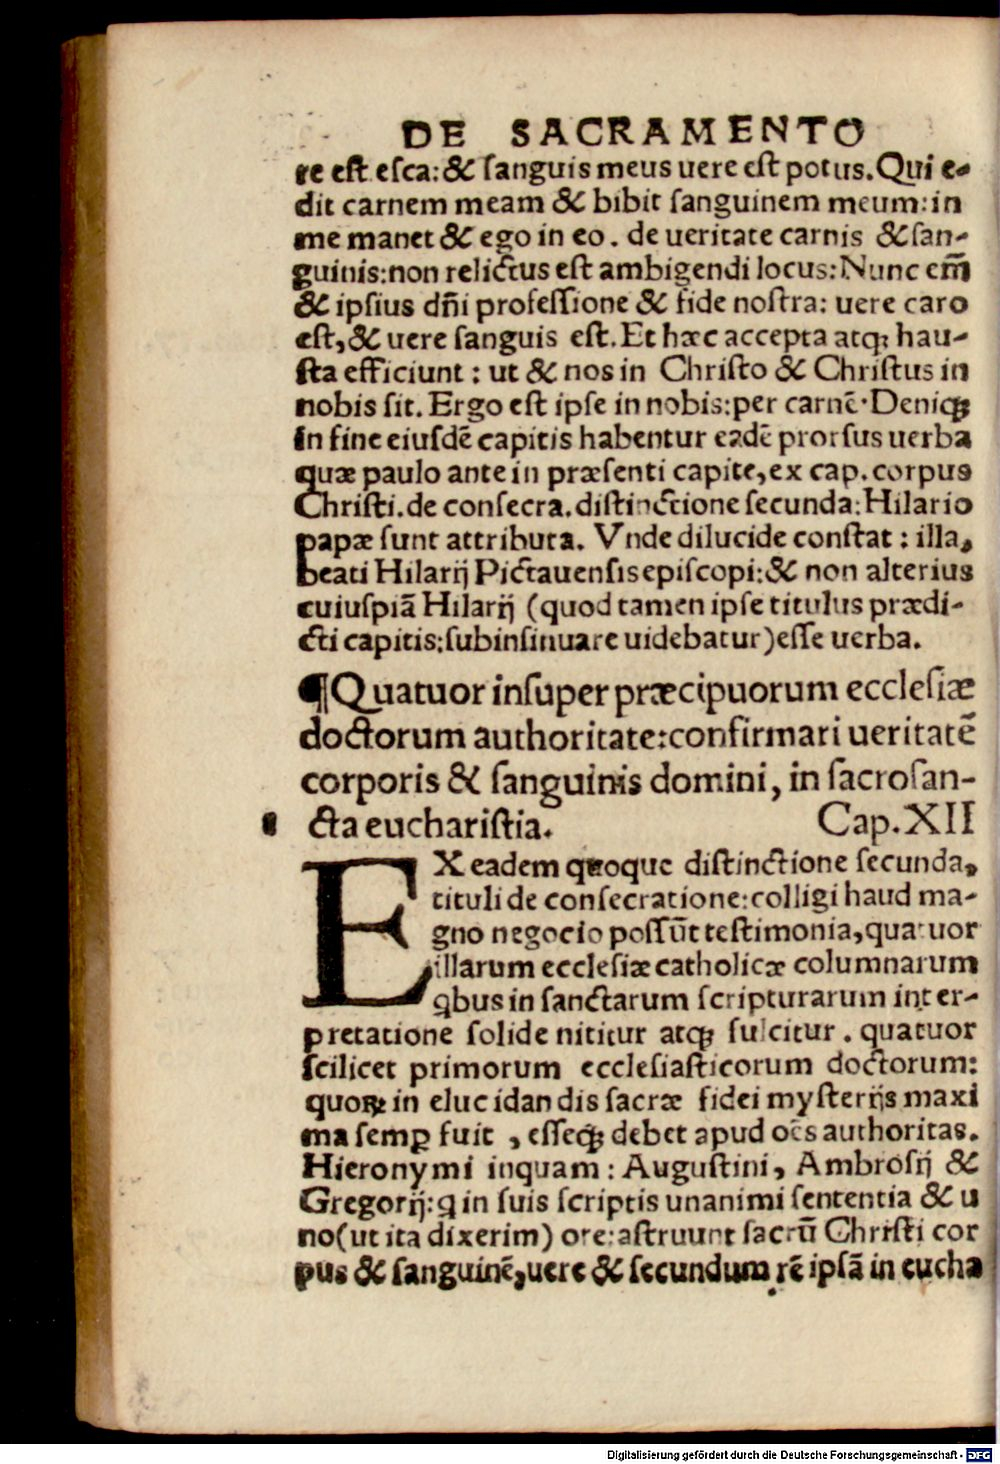 DE SACRAMENTO
re est esca: & ſanguis meus uere est potus. Qui e-
dit carnem meam & bibit ſanguinem meum: in
me manet & ego in eo. de ueritate carnis & ſan-
guinis: non relictus est ambigendi locus: Nunc em̃
& ipſius dñi profeſſione & fide noſtra: uere caro
eſt, & uere ſanguis eſt. Et hæc accepta atqꝫ hau-
ſta efficiunt: ut & nos in Chriſto & Chriſtus in
nobis ſit. Ergo eſt ipſe in nobis: per carnẽ. Deniqꝫ
in fine eiuſdẽ capitis habentur eadẽ prorſus uerba
quæ paulo ante in præſenti capite, ex cap. corpus
Chriſti. de conſecra. diſtinctione ſecunda: Hilario
papæ ſunt attributa. Vnde dilucide conſtat: illa,
beati Hilarij Pictauenſis epiſcopi: & non alterius
cuiuſpiã Hilarij (quod tamen ipſe titulus prædi-
cti capitis: ſubinſinuare uidebatur) eſſe uerba.
¶ Quatuor inſuper præcipuorum eccleſiæ
doctorum authoritate: confirmari ueritatẽ
corporis & ſanguinis domini, in ſacroſan-
cta euchariſtia. Cap. XII
EX eadem quoque diſtinctione ſecunda,
tituli de conſecratione: colligi haud ma-
gno negocio poſſũt teſtimonia, quatuor
illarum eccleſiæ catholicæ columnarum
qbus in ſanctarum ſcripturarum inter-
pretatione ſolide nititur atqꝫ fulcitur. quatuor
ſcilicet primorum eccleſiaſticorum doctorum:
quoꝝ in elucidandis ſacræ fidei myſterijs maxi
ma ſemꝑ fuit, eſſeqꝫ debet apud oẽs authoritas.
Hieronymi inquam: Auguſtini, Ambroſij &
Gregorij: q in ſuis ſcriptis unanimi ſententia & u
no (ut ita dixerim) ore: aſtruunt ſacrũ Chriſti cor
pus & ſanguinẽ, uere & ſecundum rẽ ipſã in eucha
Digitalisierung gefördert durch die Deutsche Forschungsgemeinschaft - DFG